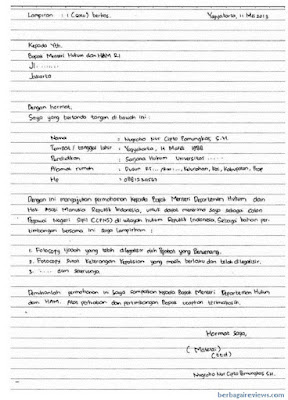 Lampiran : 1 (satu) berkas. Yogyakarta, 11 Mei 2013
Kepada Yth.
Bapak Menteri Hukum dan HAM RI
Jl. .......
Jakarta
Dengan hormat,
Saya yang bertanda tangan di bawah ini :
Nama : Nugroho Nur Cipto Pamungkas, S.H.
Tempat / tanggal lahir : Yogyakarta, 14 Maret
Pendidikan : Sarjana Hukum Universitas ......
Alamat rumah : Dusun RT..., Kelurahan, Kec, Kabupaten, Prov
Hp :
Dengan ini mengajukan permohonan kepada Bapak Menteri Departemen Hukum dan
Hak Asasi Manusia Republik Indonesia, untuk dapat menerima saya sebagai Calon
Pegawai Negeri Sipil (CPNS) di wilayah hukum Republik Indonesia. Sebagai bahan per-
timbangan bersama ini saya lampirkan :
1. Fotocopy Ijazah yang telah dilegalisir oleh Pejabat yang Berwenang.
2. Fotocopy Surat Keterangan Kepolisian yang masih berlaku dan telah dilegalisir.
3. ...... dan seterusnya.
Demikianlah permohonan ini saya sampaikan kepada Bapak Menteri Departemen Hukum
dan HAM. Atas perhatian dan pertimbangan Bapak ucapkan terimakasih.
Hormat Saya,
( Materai )
(ttd)
Nugroho Nur Cipto Pamungkas SH.
berbagaireviews.com